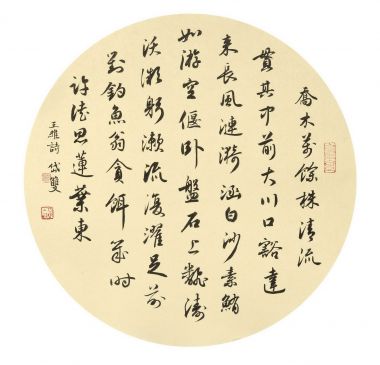 喬木萬餘株清流
貫其中前大川口豁達
來長風漣漪涵白沙素鮪
如游空偃卧盤石上翻濤
沃微躬漱流復濯足前
對釣魚翁貪餌
許徒思蓮葉東
王維詩